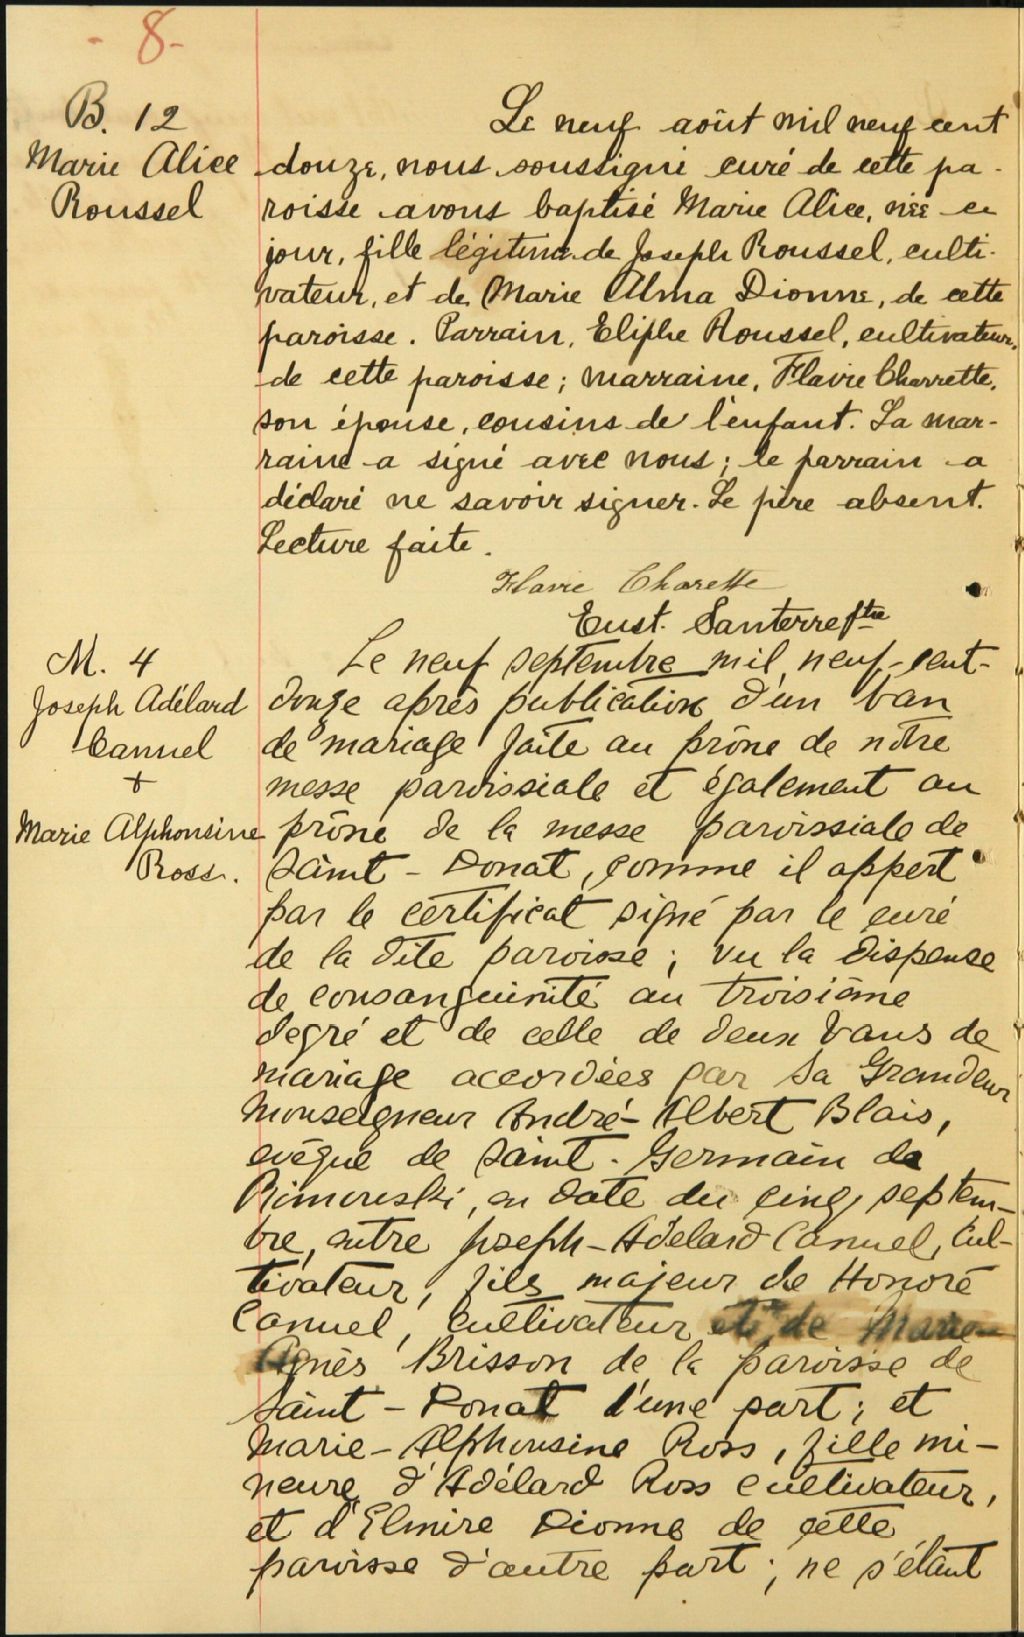 - 8 -
B. 12
Marie Alice
Roussel
Le neuf août mil neuf cent
douze, nous soussigné curé de cette pa-
roisse avons baptisé Marie Alice, née ce
jour, fille légitime de Joseph Roussel, culti-
vateur, et de Marie Alma Dionne, de cette
paroisse. Parrain, Eliphe Roussel, cultivateur,
de cette paroisse; marraine, Flavie Charrette,
son épouse, cousins de l'enfant. La mar-
raine a signé avec nous; le parrain a
déclaré ne savoir signer. Le père absent.
Lecture faite.
Flavie Charette
Eust. Santerre ptre
M. 4
Joseph Adélard
Canuel
+
Marie Alphonsine
Ross.
Le neuf septembre mil neuf-cent-
douze après publication d'un ban
de mariage faite au prône de nôtre
messe paroissiale et également au
prône de la messe paroissiale de
Saint-Donat, comme il appert
par le certificat signé par le curé
de la dite paroisse; vu la dispense
de consanguinité au troisième
degré et de celle de deux bans de
mariage accordées par Sa Grandeur
Monseigneur André-Albert Blais,
evêque de Saint-Germain de
Rimouski, en date du cinq septem-
bre, entre Joseph-Adélard Canuel, cul-
tivateur, fils majeur de Honoré
Canuel, cultivateur et de Marie
Agnès Brisson de la paroisse de
Saint-Donat d'une part; et
Marie-Alphonsine Ross, fille mi-
neure d'Adélard Ross cultivateur,
et d'Elmire Dionne de cette
paroisse d'autre part; ne s'étant